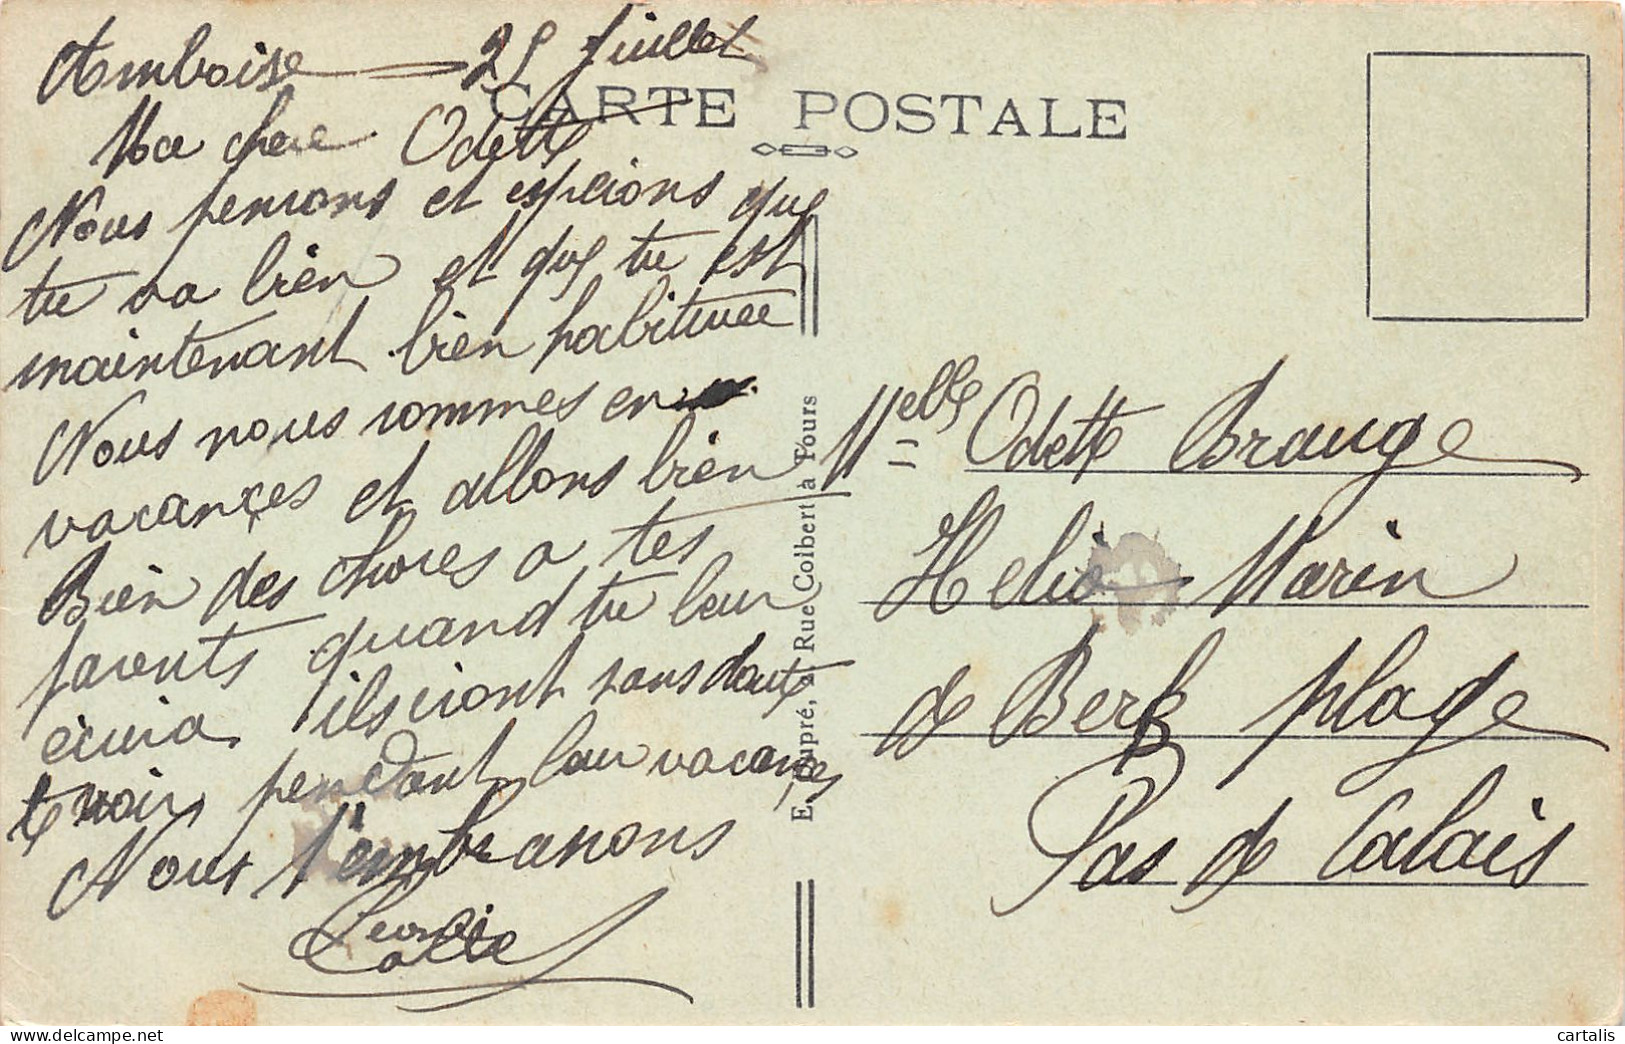 Amboise 25 Juillet
CARTE POSTALE
Ma chere Odette
Nous pensons et espcions que
tu va bien et que tu est
maintenant bien habituee
Nous nous sommes en
vacançes et allons bien
Bien des choses a tes
parents quand tu leur
ecrira ilsciront sans doute
te voir pendant leur vacançes
Nous t'embrasons
E. Dupré, Rue Colbert à Tours
Melle Odette Brauge
Helio Marin
de Berk plage
Pas de Calais
cartalis